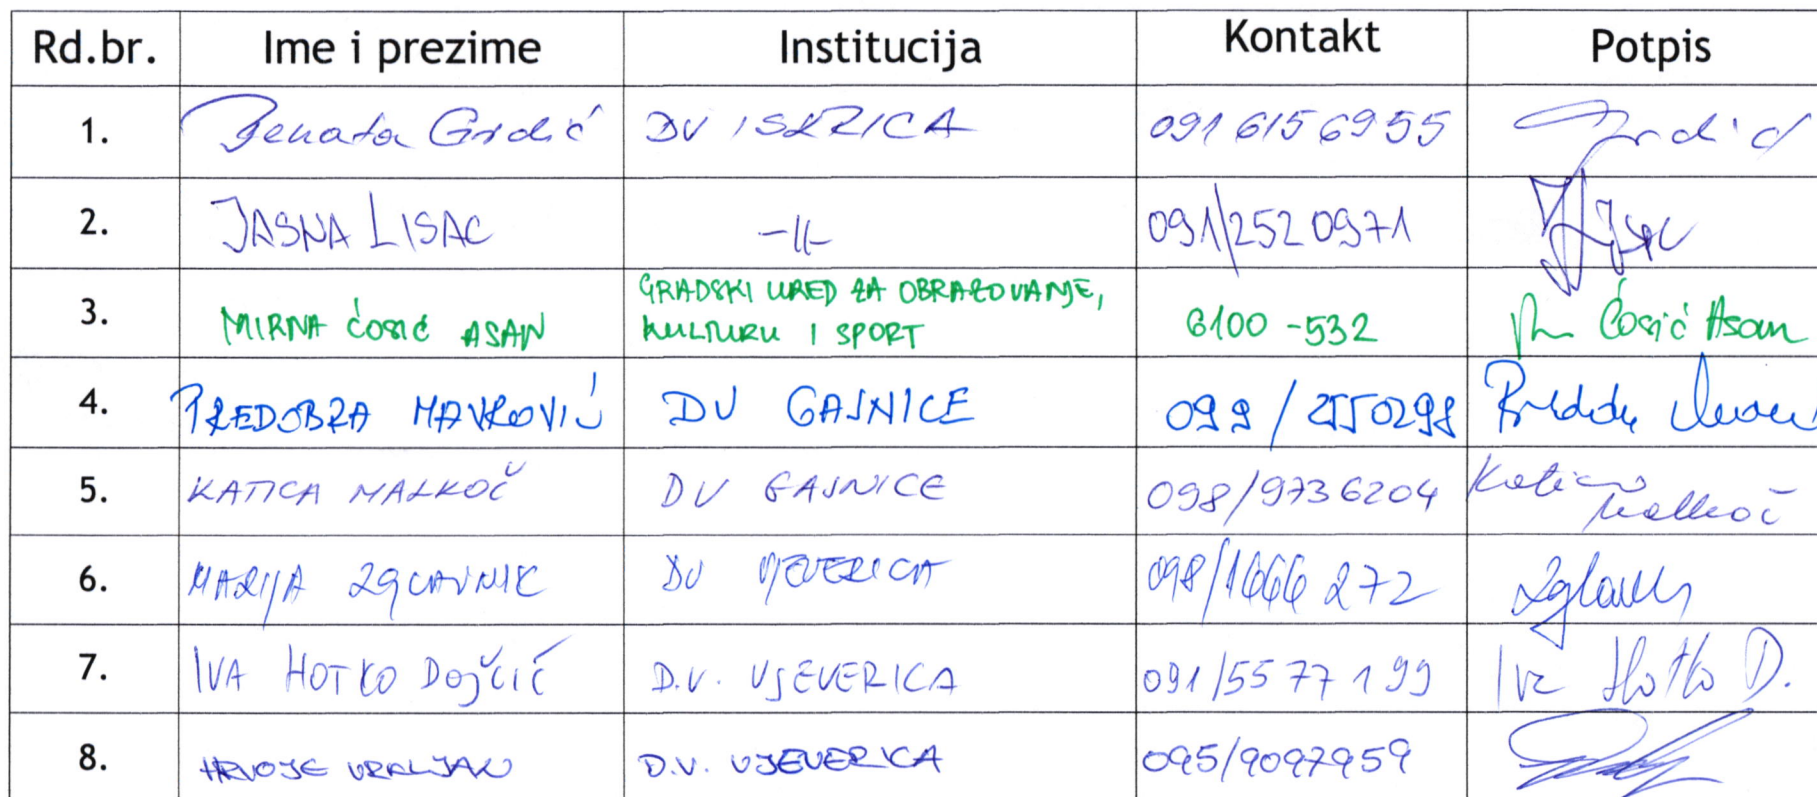 Rd.br. Ime i prezime Institucija Kontakt Potpis
1. Renata Grdić DV ISKRICA 091 6156955 Grdić
2. JASNA LISAC -||- 091/252 0971
3. MIRNA ĆOSIĆ ASAN GRADSKI URED ZA OBRAZOVANJE, KULTURU I SPORT 6100-532 Ćosić Asan
4. PREDOBRA MAVROVIĆ DV GAJNICE 099/2550298
5. KATICA MALKOČ DV GAJNICE 098/9736204 Katica Malkoč
6. MARIJA ZGLAVNIK DV VJEVERICA 098/1666 272
7. IVA HOTKO DOJČIĆ D.V. VJEVERICA 091/5577 199 Iva Hotko D.
8. HRVOJE VRALJAK D.V. VJEVERICA 095/9097959